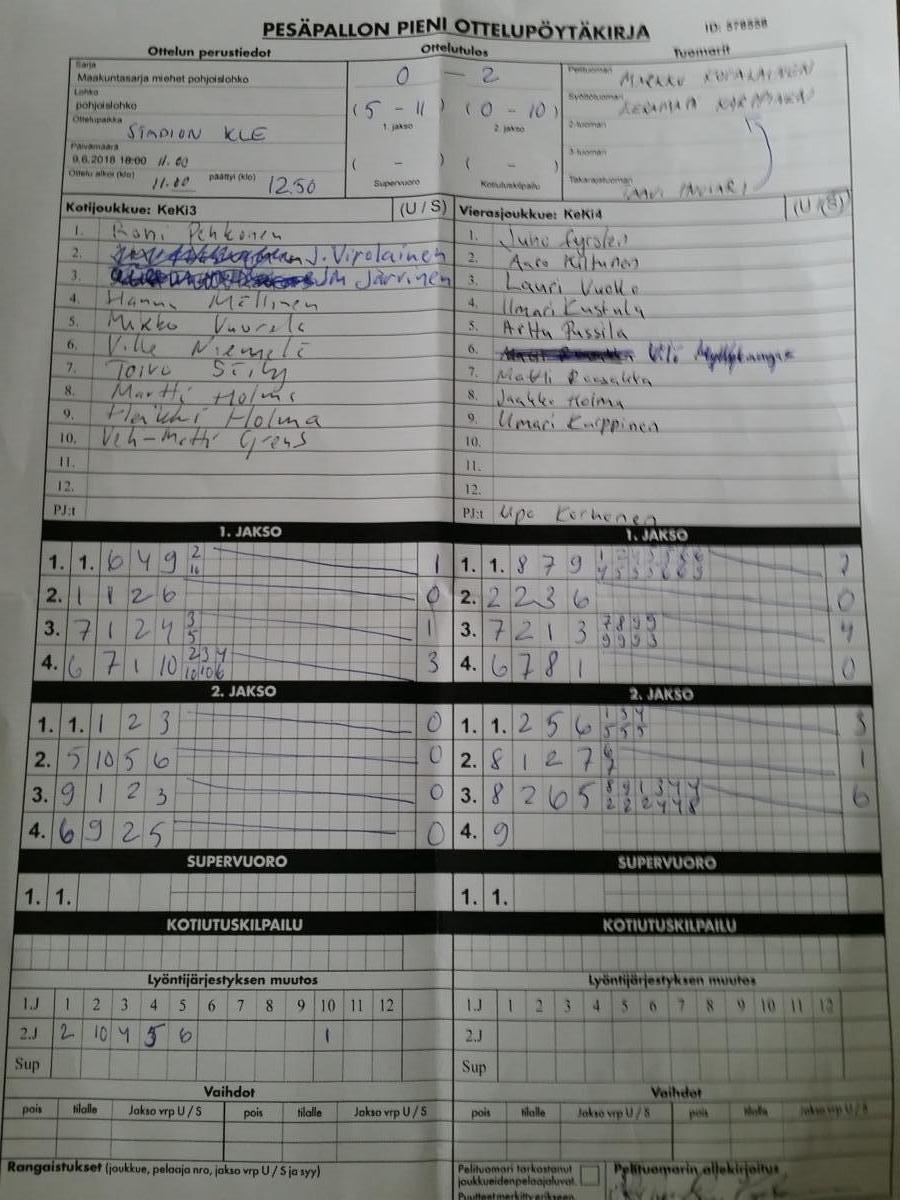 PESÄPALLON PIENI OTTELUPÖYTÄKIRJA
Ottelun perustiedot Ottelutulos Tuomarit
Sarja
Maakuntasarja miehet pohjoislohko 0 - 2 Pelituomari MARKKU
Lohko
pohjoislohko (5 - 11) (0 - 10) Syöttötuomari
Ottelupaikka 1. jakso 2. jakso 2-tuomari
STADION KLE
Päivämäärä 3-tuomari
9.6.2018 18:00 11.00 ( - ) ( - )
Ottelu alkoi (klo) 11.00 päättyi (klo) 12.50 Supervuoro Kotiutuskilpailu Takarajatuomari
Kotijoukkue: KeKi3 (U / S) Vierasjoukkue: KeKi4 (U / S)
1. Roni Pehkonen 1. Juho Fyrsten
2. J. Virolainen 2. Aaro Kiltunen
3. JM Järvinen 3. Lauri Vuoko
4. Hannu Mällinen 4. Ilmari Kustula
5. Mikko Vuorela 5. Arttu Pussila
6. Ville Niemelä 6. Vili
7. Toivo 7. Matti
8. Martti Holma 8. Jaakko Holma
9. Heikki Holma 9. Ilmari Karppinen
10. Veli-Matti Grens 10.
11. 11.
12. 12.
PJ:t PJ:t Upo Korhonen
1. JAKSO 1. JAKSO
1. 1. 6 4 9 2 10 1 1. 1. 8 7 9
2. 1 1 2 6 0 2. 2 2 3 6 0
3. 7 1 2 4 3 5 1 3. 7 2 1 3 7 8 9 9 9 9 3 3 4
4. 6 7 1 10 2 3 4 10 10 6 3 4. 6 7 8 1 0
2. JAKSO 2. JAKSO
1. 1. 1 2 3 0 1. 1. 2 5 6 1 3 4 5 5 5 3
2. 5 10 5 6 0 2. 8 1 2 7 1
3. 9 1 2 3 0 3. 8 2 6 5 8 9 1 3 4 4 2 2 2 4 4 8 6
4. 6 9 2 5 0 4. 9
SUPERVUORO SUPERVUORO
1. 1. 1. 1.
KOTIUTUSKILPAILU KOTIUTUSKILPAILU
Lyöntijärjestyksen muutos Lyöntijärjestyksen muutos
1.J 1 2 3 4 5 6 7 8 9 10 11 12 1.J 1 2 3 4 5 6 7 8 9 10 11 12
2.J 2 10 4 5 6 1 2.J
Sup Sup
Vaihdot Vaihdot
pois tilalle Jakso vrp U / S pois tilalle Jakso vrp U / S pois tilalle Jakso vrp U / S pois tilalle Jakso vrp U / S
Rangaistukset (joukkue, pelaaja nro, jakso vrp U / S ja syy) Pelituomari tarkastanut Pelituomarin allekirjoitus
joukkueidenpelaajaluvat.
Puutteet merkitty erikseen